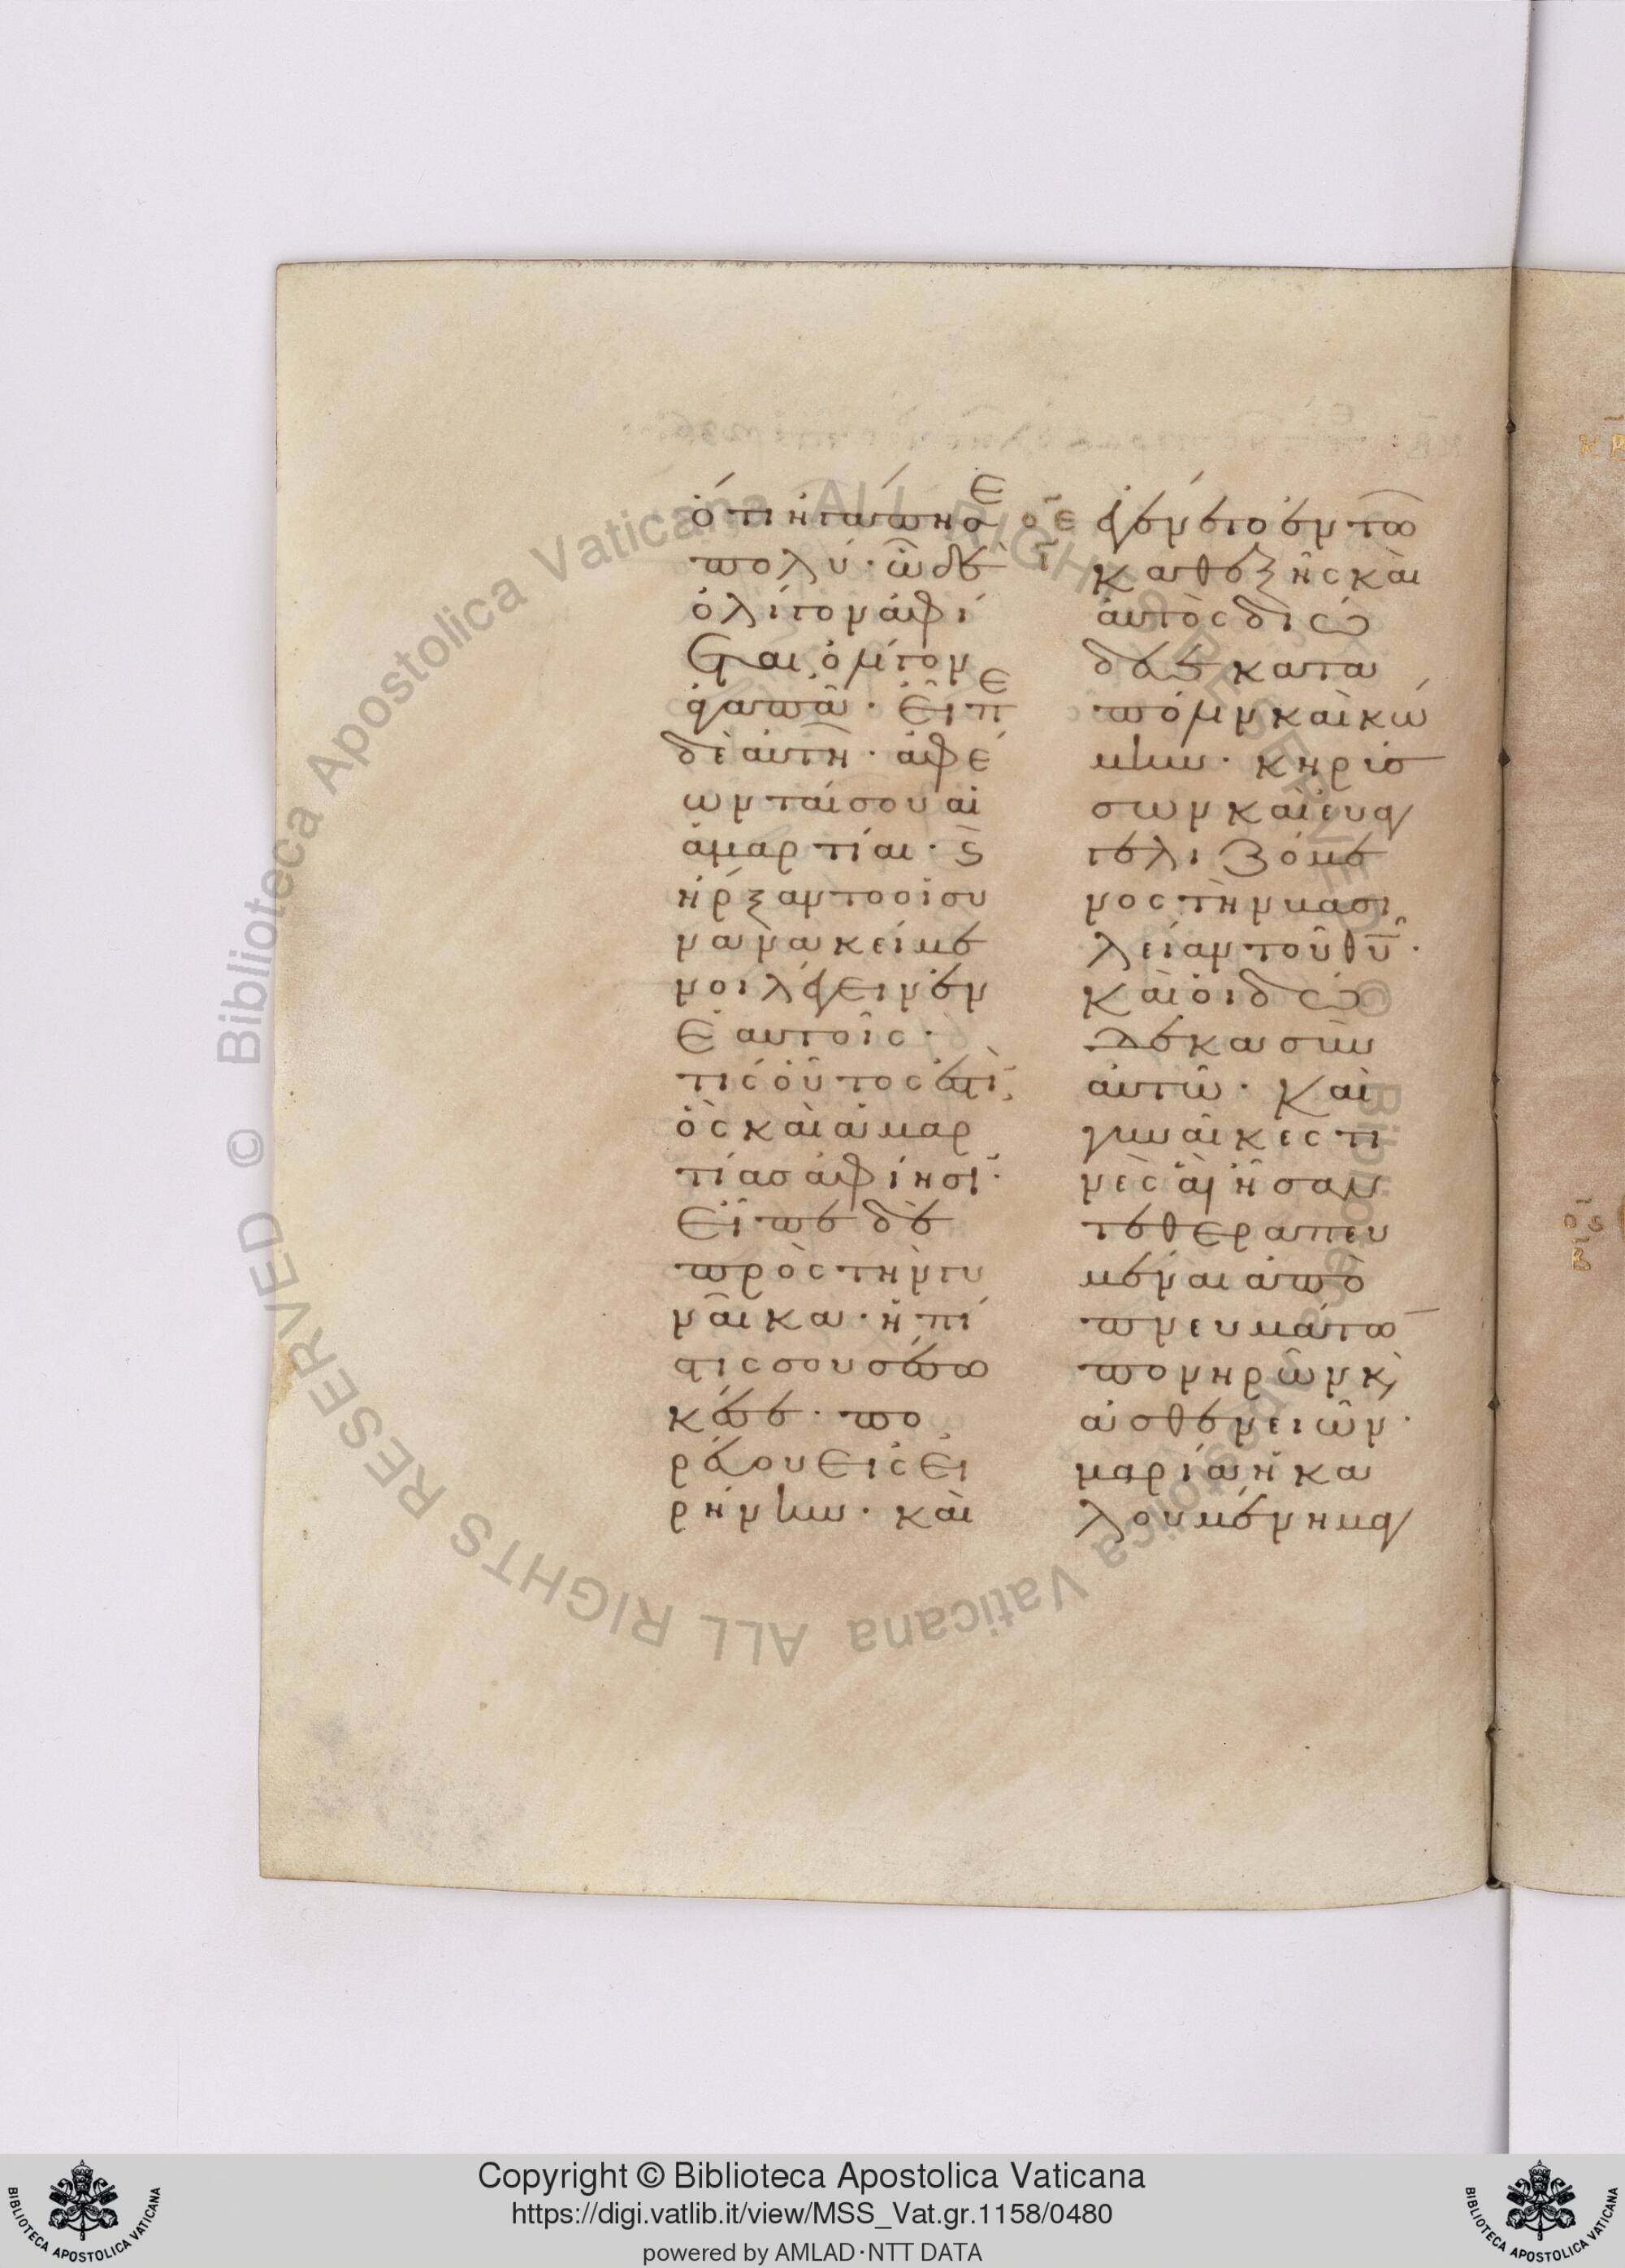 ὅτι ἠγάπησε
πολύ· ᾧ δὲ
ὀλίγον ἀφί
εται ὀλίγον
ἀγαπᾶ· εἶπε
δὲ αὐτῆ· ἀφέ
ωνταί σου αἱ
ἁμαρτίαι· ϛ
ἤρξαντο οἱ συ
νανακείμε
νοι λέγειν ἐν
ἑαυτοῖς·
τίς οὗτός ἐστι;
ὃς καὶ ἁμαρ
τίας ἀφίησι·
εἶπε δὲ
πρὸς τὴν γυ
ναῖκα· ἡ πί
στις σου σέσω
κέ σε· πο
ρεύου εἰς εἰ
ρήνην· καὶ
οε
ι
ἐγένετο ἐν τῶ
καθεξῆς καὶ
αὐτὸς διώ
δευε κατὰ
πόλιν καὶ κώ
μην· κηρύσ
σων καὶ εὐαγ
γελιζόμε
νος τὴν βασι
λείαν τοῦ θυ·
καὶ οἱ δώ
δεκα σὺν
αὐτῶ· καὶ
γυναῖκές τι
νες αἳ ἦσαν
τεθεραπευ
μέναι ἀπὸ
πνευμάτω
πονηρῶν κ
ἀσθενειῶν·
μαρία ἡ κα
λουμένη μαγ
κβ
ος
β
© Biblioteca Apostolica Vaticana ALL RIGHTS RESERVED © Biblioteca Apostolica Vaticana ALL RIGHTS RESERVED
Copyright © Biblioteca Apostolica Vaticana
https://digi.vatlib.it/view/MSS_Vat.gr.1158/0480
powered by AMLAD·NTT DATA
BIBLIOTECA APOSTOLICA VATICANA
BIBLIOTECA APOSTOLICA VATICANA